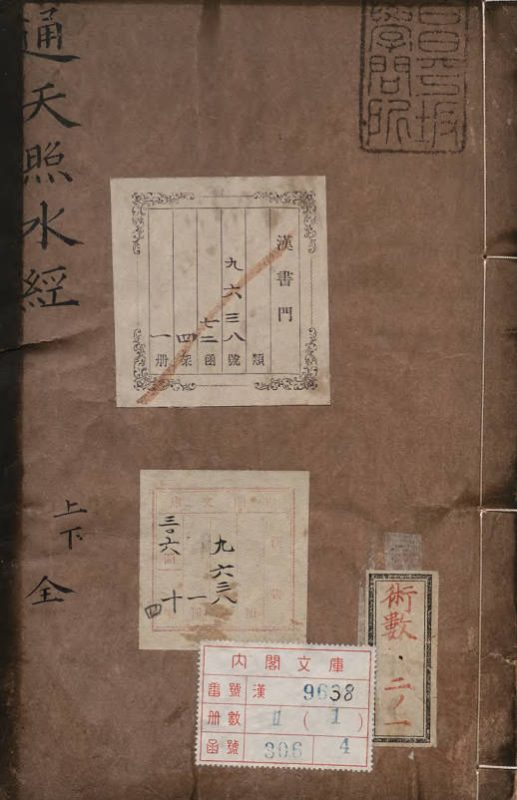 通天照水經
上下 全
昌平坂
學問所
漢書門
類
九六三八號
七二函
四架
一册
九六三八
三〇六
十一
四
術數・二ノ一
內閣文庫
番號 漢 9638
册數 1(1)
函號 306 4